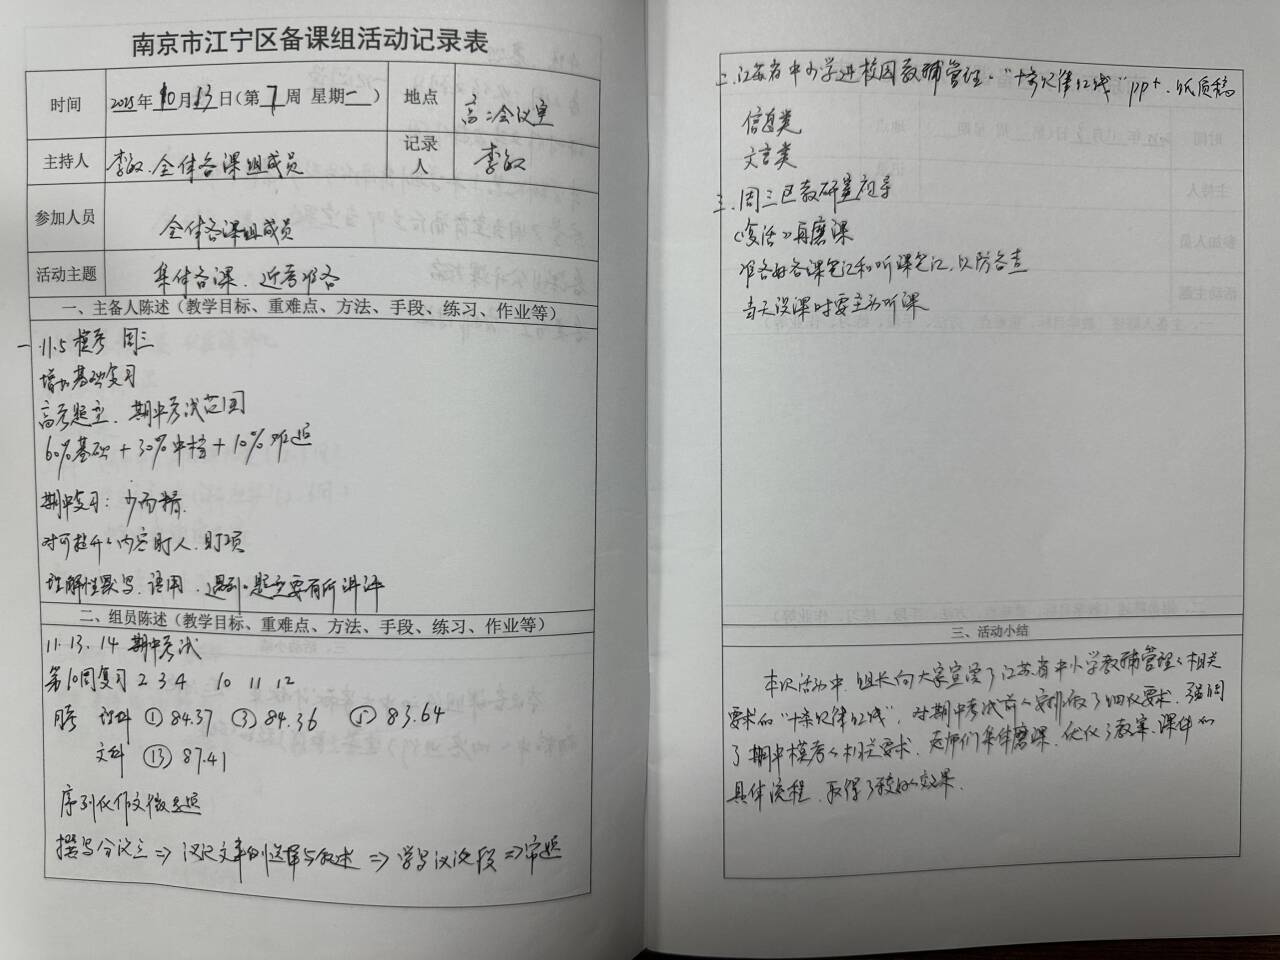 南京市江宁区备课组活动记录表
时间 2025年10月13日(第7周 星期一) 地点 高二会议室
主持人 李敏 全体备课组成员 记录人 李敏
参加人员 全体备课组成员
活动主题 集体备课、迎考准备
一、主备人陈述(教学目标、重难点、方法、手段、练习、作业等)
一、11.5 模考 周三
增加基础复习
高考题型、期中考试范围
60%基础+30%中档+10%难题
期中复习:少而精.
对可提升的内容盯人、盯项
理解性默写、语用、遇到题型要有所讲评
二、组员陈述(教学目标、重难点、方法、手段、练习、作业等)
11.13.14 期中考试
第10周复习 2 3 4 10 11 12
月考 理科 ① 84.37 ③ 84.36 ⑤ 83.64
文科 ⑬ 87.41
序列化作文微专题
撰写分议三⇒议论文事例选择与叙述⇒学写议论段⇒审题
二、江苏省中小学进校园教辅管理、"十条纪律红线" ppt、纸质稿
信息类
文言类
三、周三区教研室视导
《复活》再磨课
准备好备课笔记和听课笔记,以防备查
当天没课时要主动听课
三、活动小结
本次活动中,组长向大家宣读了江苏省中小学教辅管理的相关
要求的"十条纪律红线",对期中考试前的安排做了细化要求,强调
了期中模考的相关要求,老师们集体磨课,优化了教案、课件的
具体流程,取得了较好的效果.